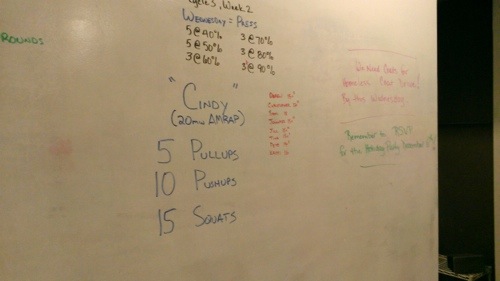 ROUNDS
Cycle 3, Week 2
WEDNESDAY = PRESS
5@40% 3@70%
5@50% 3@80%
3@60% 3@90%
"CINDY"
(20min AMRAP)
5 PULLUPS
10 PUSHUPS
15 SQUATS
We Need Coats for
Homeless Coat Drive!
By this Wednesday.
Remember to RSVP
for the Holiday Party December